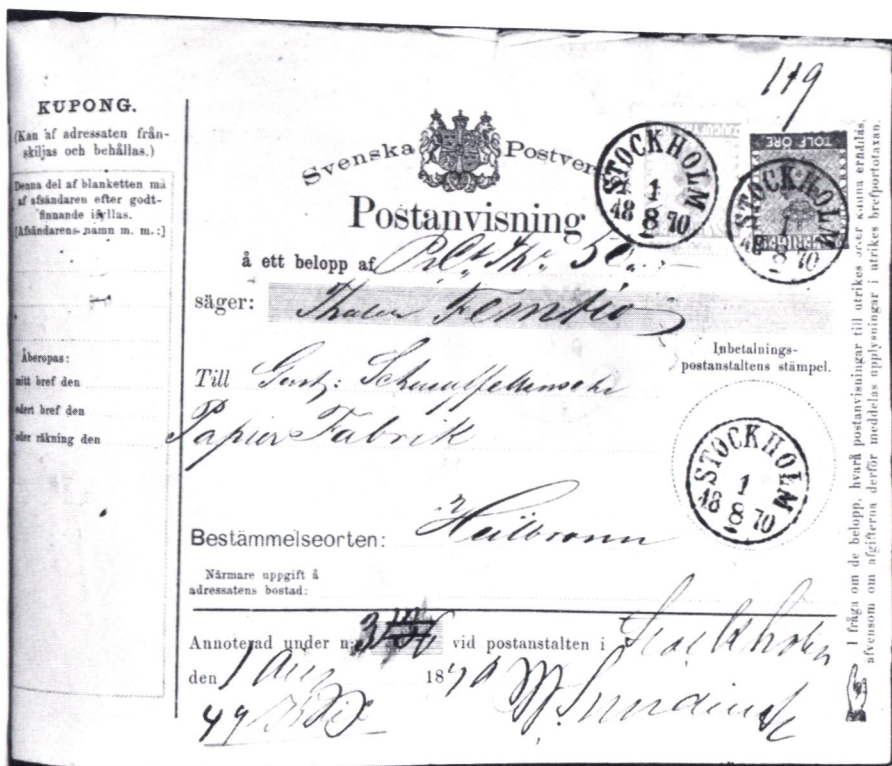 KUPONG.
(Kan af adressaten från-
skiljas och behållas.)
Denna del af blanketten må
af afsändaren efter godt-
finnande ifyllas.
[Afsändarens namn m. m.:]
Åberopas:
mitt bref den
edert bref den
eller räkning den
119
Svenska Postver
Postanvisning
å ett belopp af 50
säger: Thaler Femtio
Till
Papier Fabrik
Bestämmelseorten: Heilbronn
Närmare uppgift å
adressatens bostad:
Annoterad under n: 3 vid postanstalten i Stockholm
den 1 aug 1870
TOLF ÖRE
STOCKHOLM
1
48 8 70
STOCKHOLM
1
8 70
Inbetalnings-
postanstaltens stämpel.
STOCKHOLM
1
48 8 70
I fråga om de belopp, hvarå postanvisningar till utrikes orter kunna erhållas,
äfvensom om afgifterna derför meddelas upplysningar i utrikes brefportotaxan.